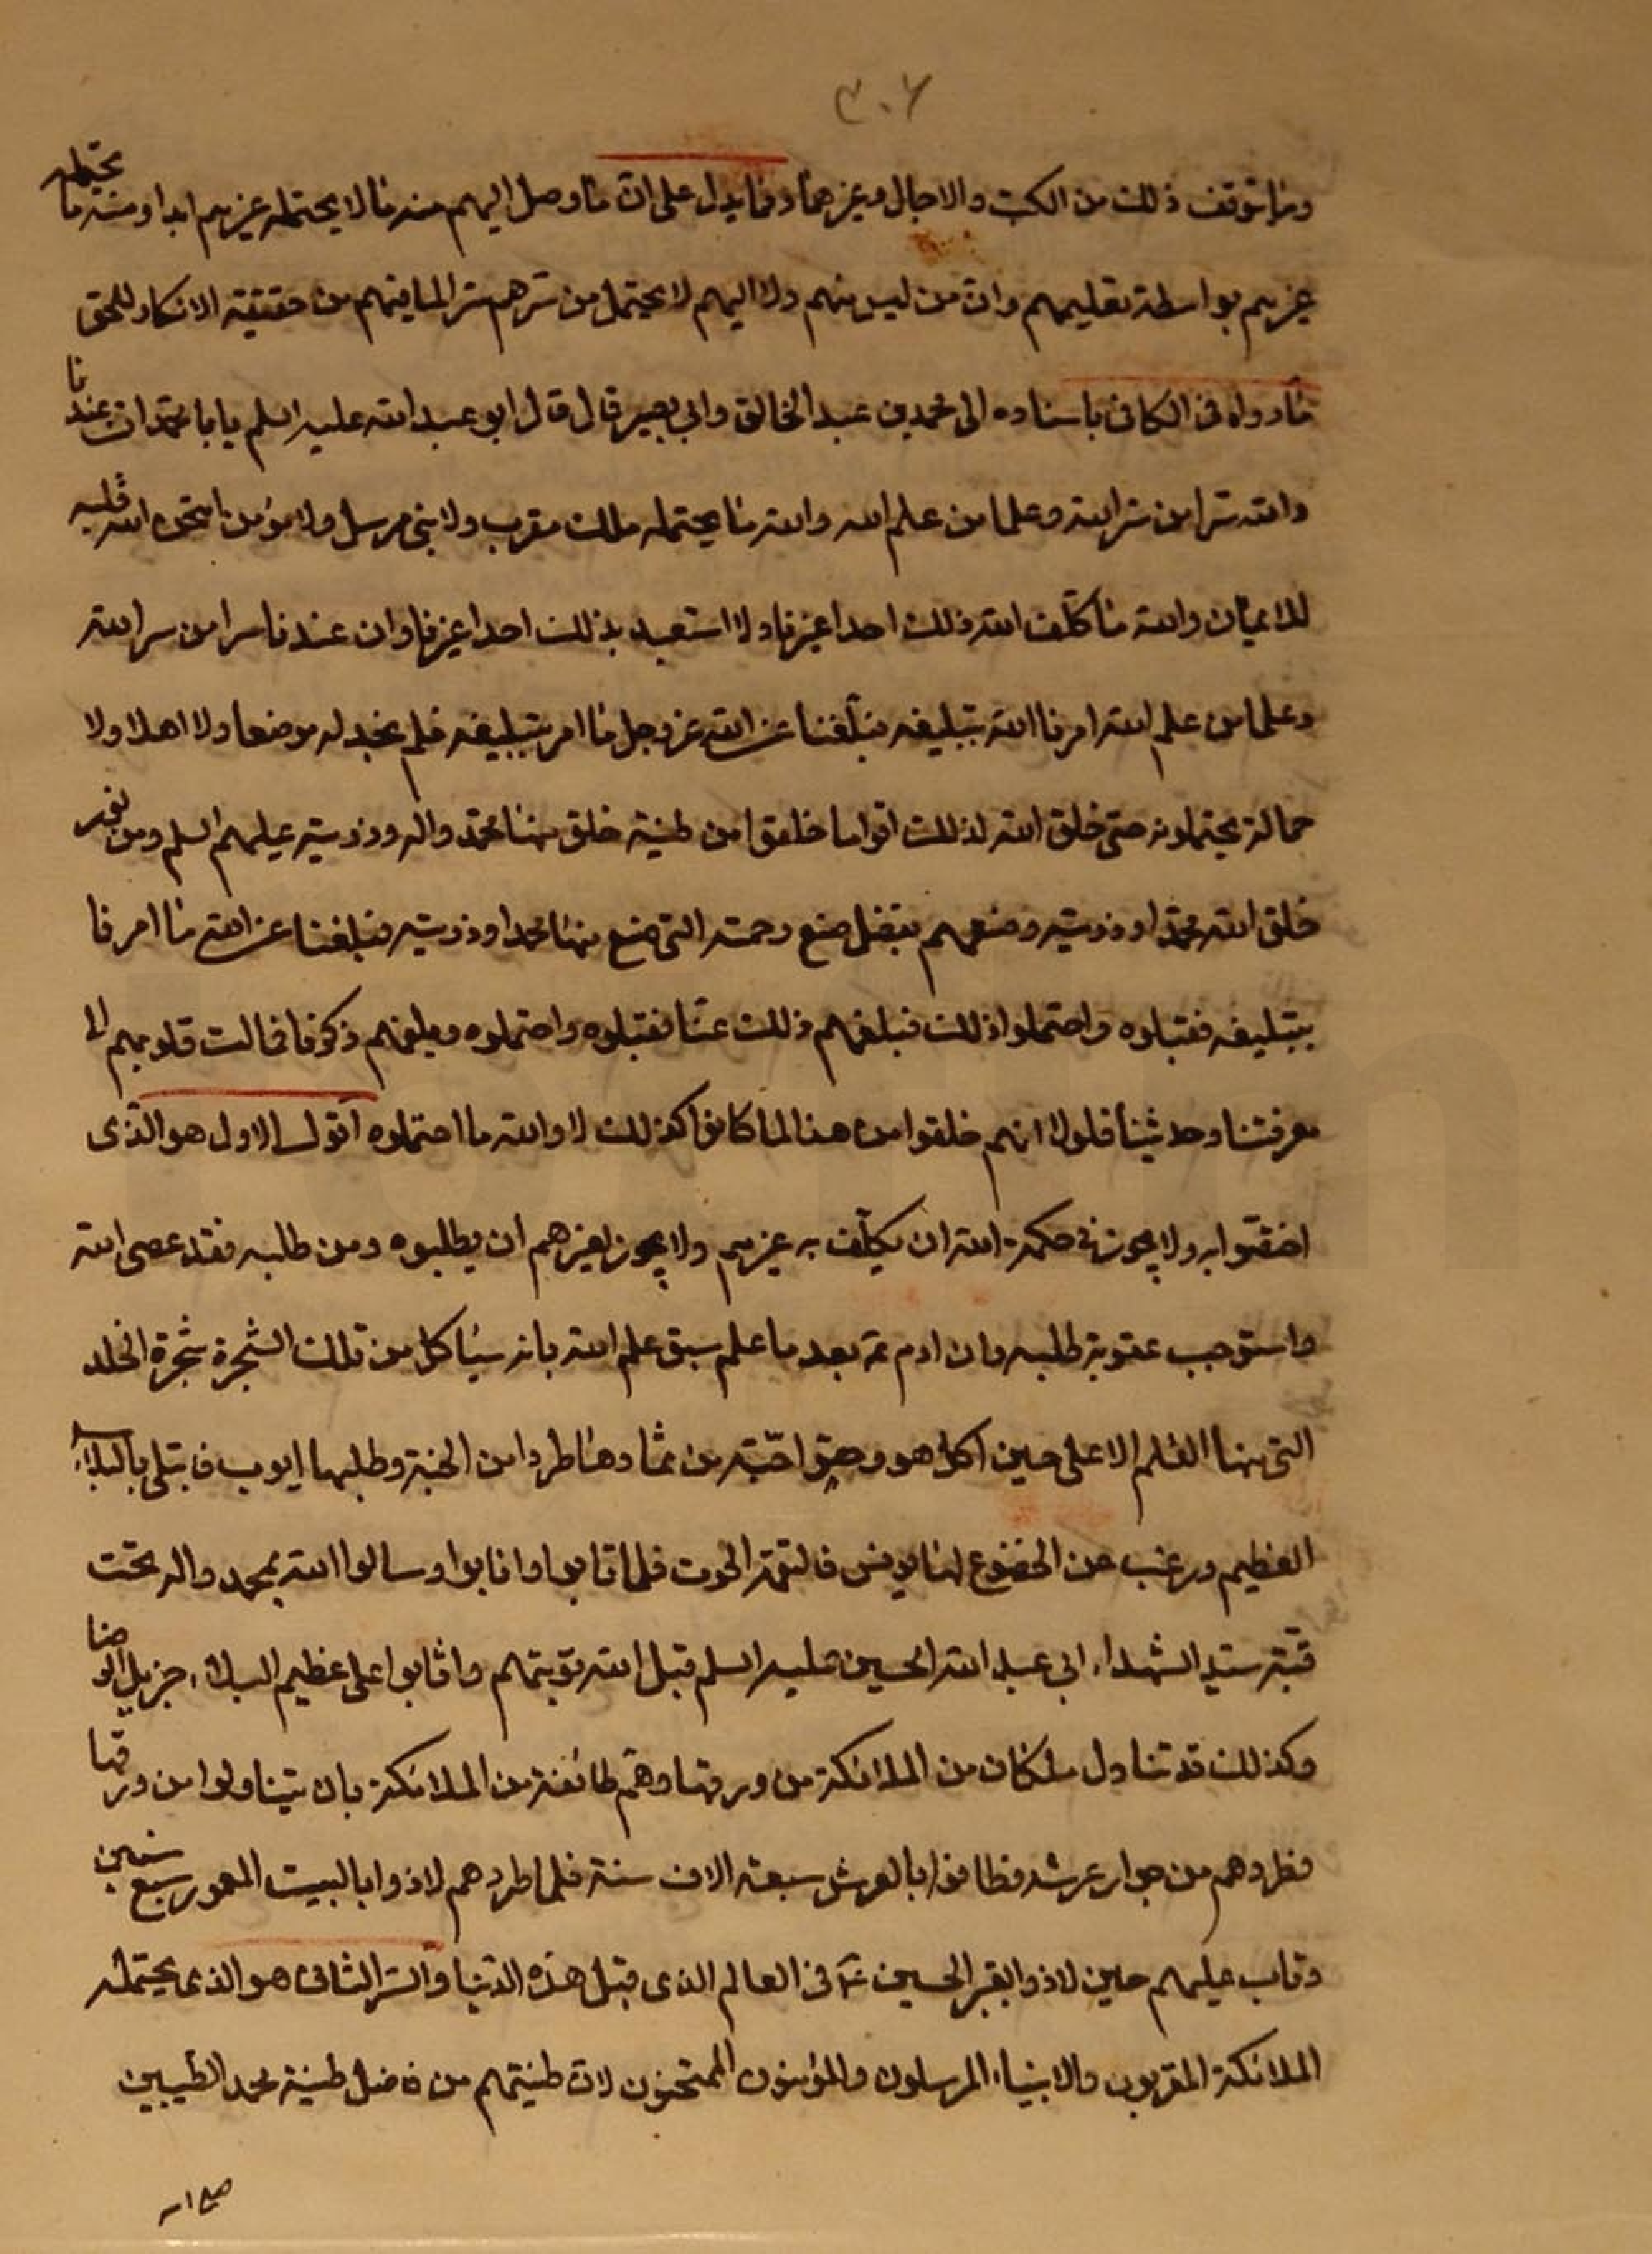 ٣٠٦
وما يتوقف ذلك من الكتب والاجال وغيرهما ومما يدل على ان ما وصل اليهم منه ما لا يحتمله غيرهم ابدا ومنه ما يحتمله
غيرهم بواسطة تعليمهم وان من ليس منهم ولا اليهم لا يحتمل من سرهم سرا لما فيهم من حقيقة الانكار للحق
ما رواه فى الكافى باسناده الى محمد بن عبد الخالق وابى بصير قال قال ابو عبد الله عليه السلم يا با محمد ان عندنا
والله سرا من سر الله وعلما من علم الله والله ما يحتمله ملك مقرب ولا نبى مرسل ولا مؤمن امتحن الله قلبه
للايمان والله ما كلف الله ذلك احدا غيرنا ولا استعبد بذلك احدا غيرنا وان عندنا سرا من سر الله
وعلما من علم الله امرنا الله بتبليغه فبلغنا عن الله عز وجل ما امر بتبليغه فلم نجد له موضعا ولا اهلا ولا
حمالة يحتملونه حتى خلق الله لذلك اقواما خلقوا من طينة خلق منها محمد واله وذريته عليهم السلم ومن نور
خلق الله محمدا وذريته وصنعهم بفضل صنع رحمته التى صنع منها محمدا وذريته فبلغنا عن الله ما امرنا
بتبليغه فقبلوه واحتملوا ذلك فبلغهم ذلك عنا فقبلوه واحتملوه وبلغهم ذكرنا فمالت قلوبهم الى
معرفتنا وحديثنا فلولا انهم خلقوا من هذا لما كانوا كذلك لا والله ما احتملوه اقول السر الاول هو الذى
اختصوا به ولا يجوز فى حكمة الله ان يكلف به غيرهم ولا يجوز لغيرهم ان يطلبوه ومن طلبه فقد عصى الله
واستوجب عقوبة طلبه وان ادم ع بعد ما علم سبق علم الله بانه سياكل من تلك الشجرة شجرة الخلد
التى منها العلم الاعلى حين اكل هو وحوا حبة من ثمارها طردا من الجنة وطلبها ايوب فابتلى بالبلاء
العظيم ورغب عن الخضوع لها يونس فالتقمه الحوت فلما تابوا وانابوا وسالوا الله بمحمد واله تحت
قبة سيد الشهداء ابى عبد الله الحسين عليه السلم قبل الله توبتهم واثابوا على عظيم البلاء جزيل الرضا
وكذلك قد تناول ملكان من الملائكة من ورقها وهم طائفة من الملائكة بان يتناولوا من ورقها
فطردهم من جوار عرشه فطافوا بالعرش سبعة الاف سنة فلما طردهم لاذوا بالبيت المعمور سبع سنين
وتاب عليهم حين لاذوا بقبر الحسين ع فى العالم الذى قبل هذه الدنيا والسر الثانى هو الذى يحتمله
الملائكة المقربون والانبياء المرسلون والمؤمنون الممتحنون لان طينتهم من فاضل طينة محمد الطيبين